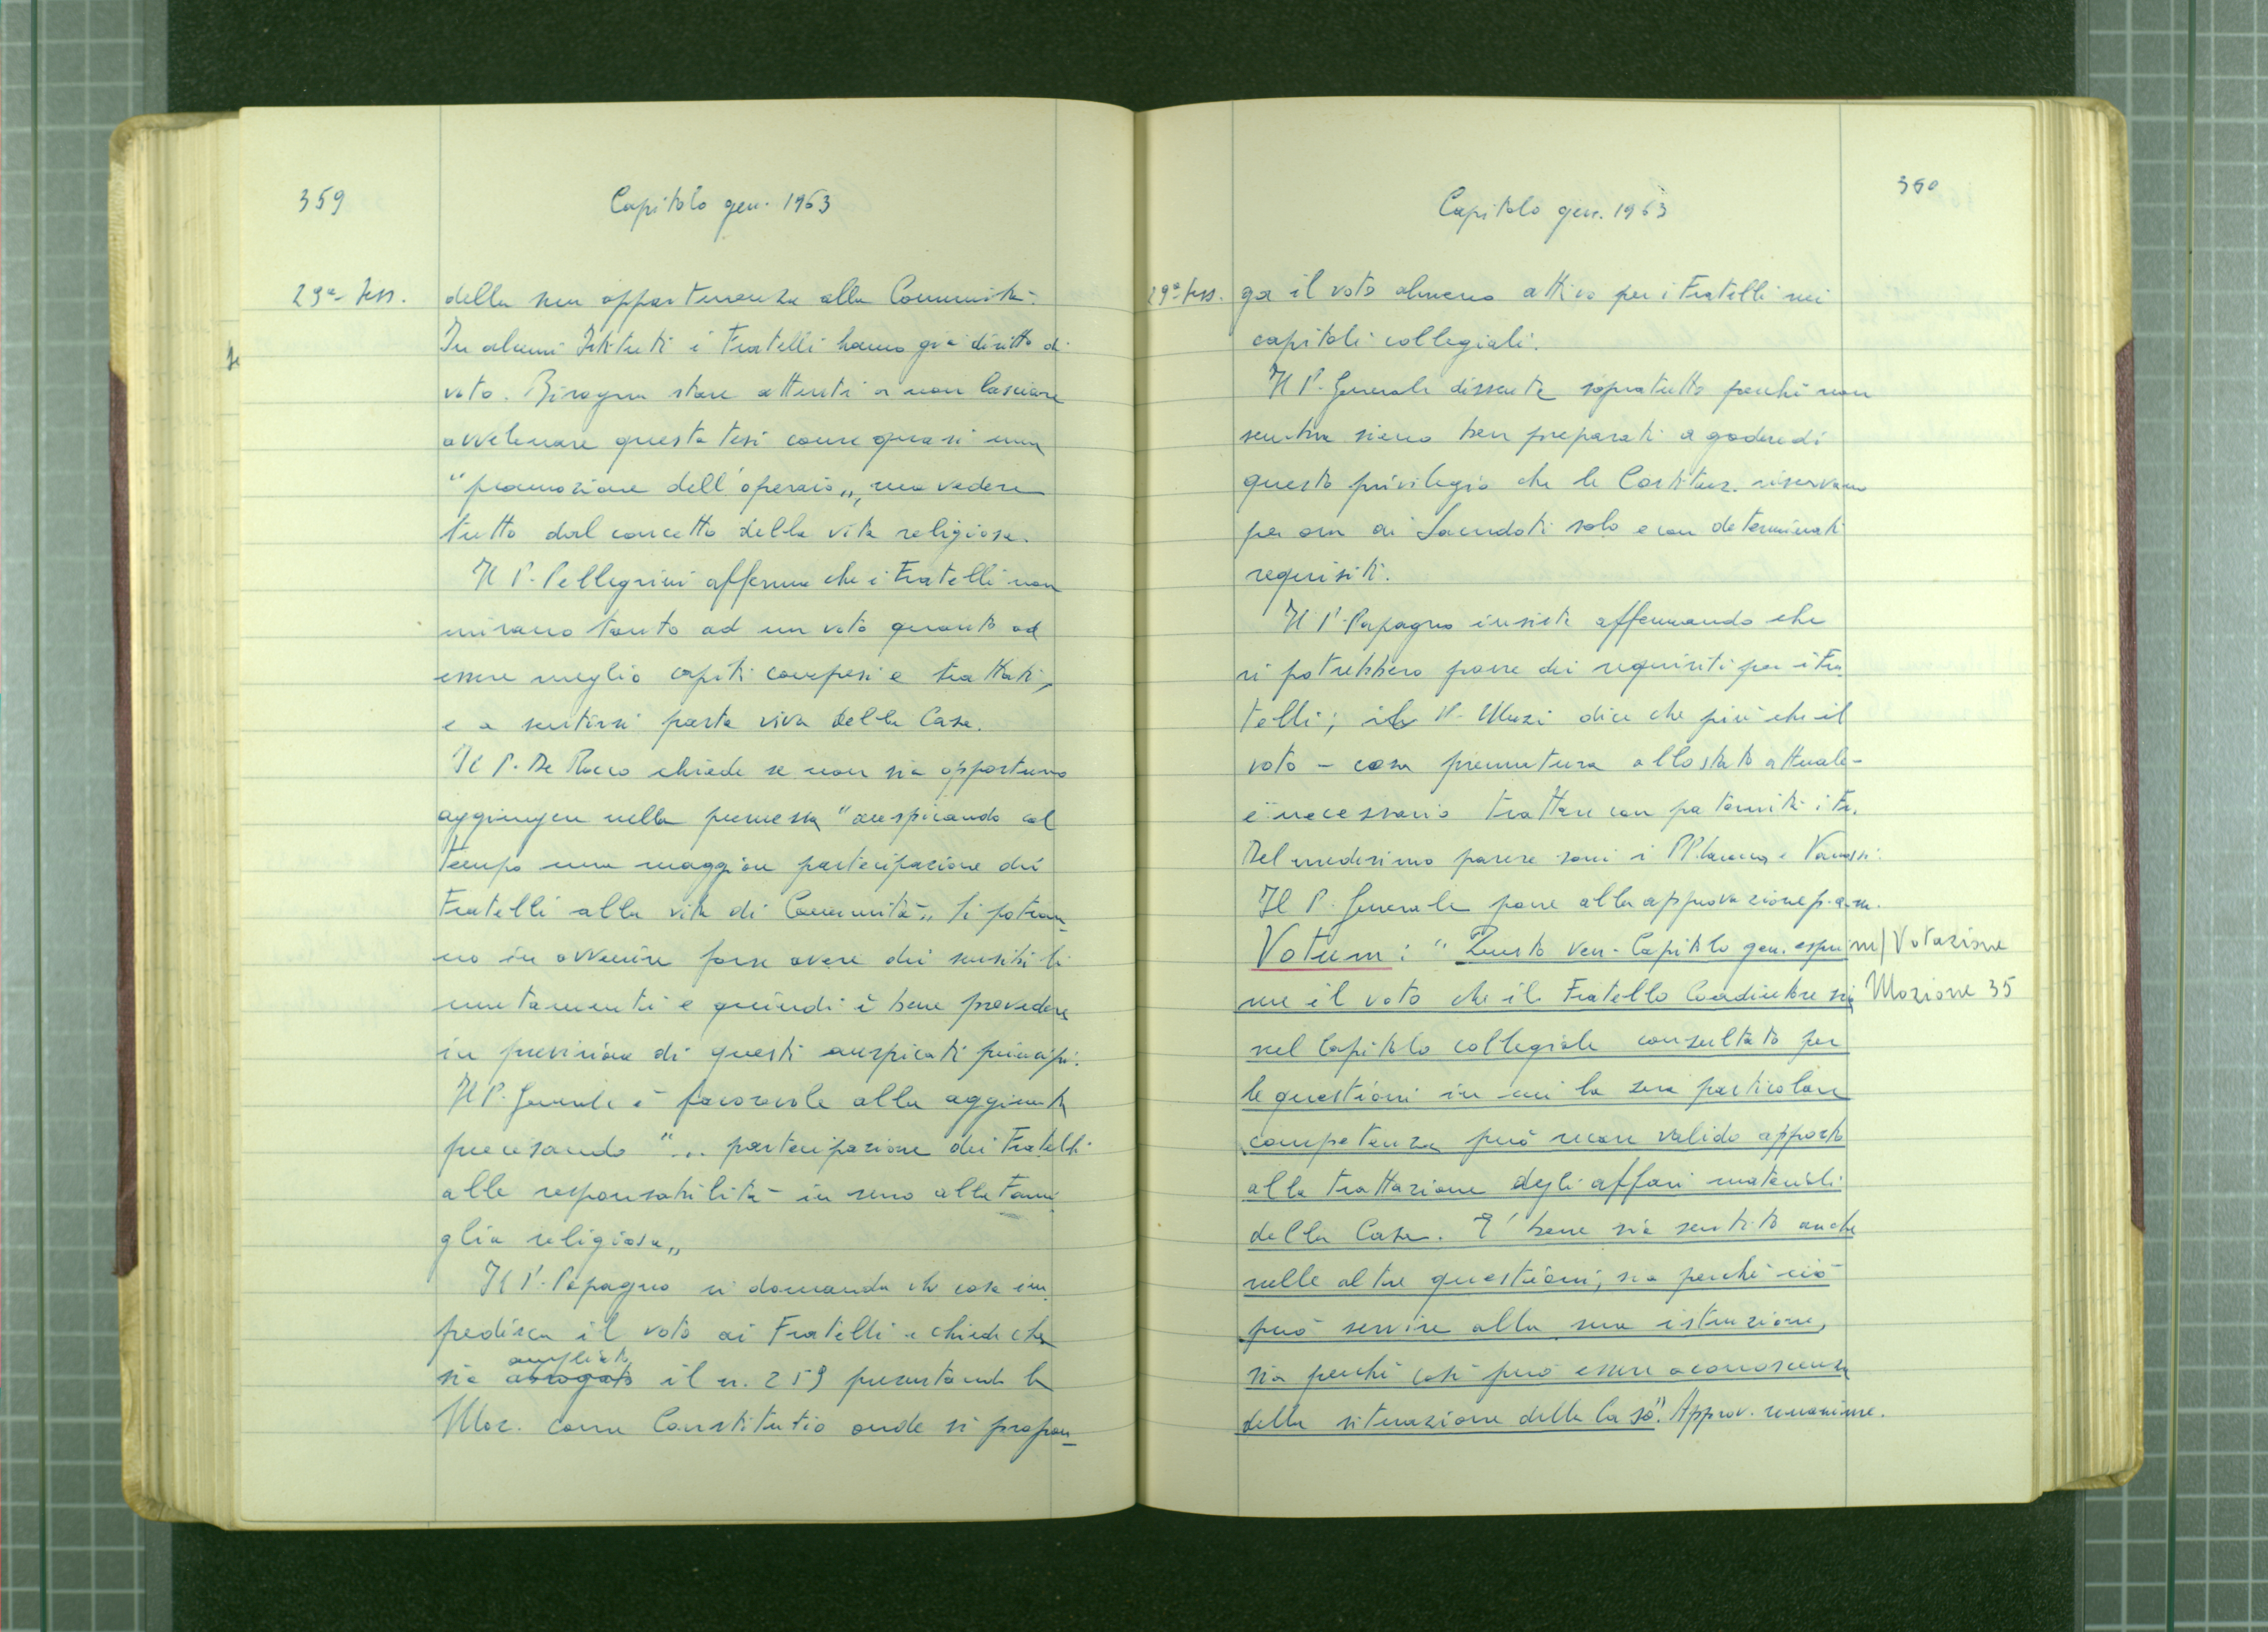 359
Capitolo gen. 1963
29ª sess.
della non appartenenza alla Comunità.
In alcuni Istituti i Fratelli hanno già diritto di
voto. Bisogna stare attenti a non lasciare
avvelenare questa tesi come quasi una
"promozione dell'operaio„, ma vedere
tutto dal concetto della vita religiosa.
Il P. Pellegrini afferma che i Fratelli non
mirano tanto ad un voto quanto ad
essere meglio capiti compresi e trattati,
e a sentirsi parte viva della Casa.
Il P. De Rocco chiede se non sia opportuno
aggiungere nella premessa "auspicando col
tempo una maggiore partecipazione dei
Fratelli alla vita di Comunità„. Si potran-
no in avvenire forse avere dei sensibili
mutamenti e quindi è bene provvedere
in previsione di questi auspicati principi.
Il P. Generale è favorevole alla aggiunta
precisando "... partecipazione dei Fratelli
alle responsabilità in seno alla Fami-
glia religiosa„
Il P. Papagno si domanda che cosa im-
pedisca il voto ai Fratelli e chiede che
ampliato
sia abrogato il n. 259 presentando la
Moz. come Constitutio onde si propon-
360
Capitolo gen. 1963
29ª sess.
ga il voto almeno attivo per i Fratelli nei
capitoli collegiali.
Il P. Generale dissente sopratutto perchè non
sembra sieno ben preparati a godere di
questo privilegio che le Costituz. riservano
per ora ai Sacerdoti solo e con determinati
requisiti.
Il P. Papagno insiste affermando che
si potrebbero porre dei requisiti per i Fra-
telli; il P. Muzi dice che più che il
voto - cosa prematura allo stato attuale -
è necessario trattare con paternità i Fr.
Del medesimo parere sono i PP. e Vanossi.
Il P. Generale pone alla approvazione p.a.m.
Votum: "Questo ven. Capitolo gen. espri-
m/ Votazione
me il voto che il Fratello Coadiutore sia
Mozione 35
nel Capitolo collegiale consultato per
le questioni in cui la sua particolare
competenza può recare valido apporto
alla trattazione degli affari materiali
della Casa. E' bene sia sentito anche
nelle altre questioni, sia perchè ciò
può servire alla sua istruzione,
sia perchè così può essere a conoscenza
della situazione della Casa". Approv. unanime.